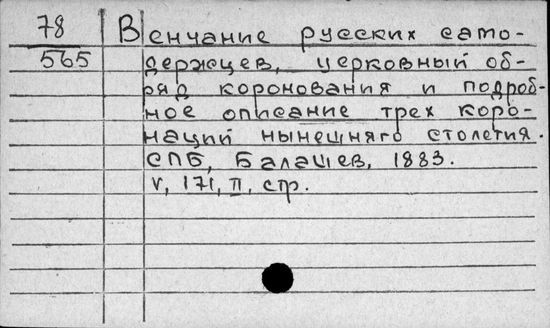 78
565
Венчание русских само-
держцев, церковный об-
ряд коронования и подроб-
ное описание трех коро-
наций нынешняго столетия.
СПБ, Балашев, 1883.
V, 171, II, стр.